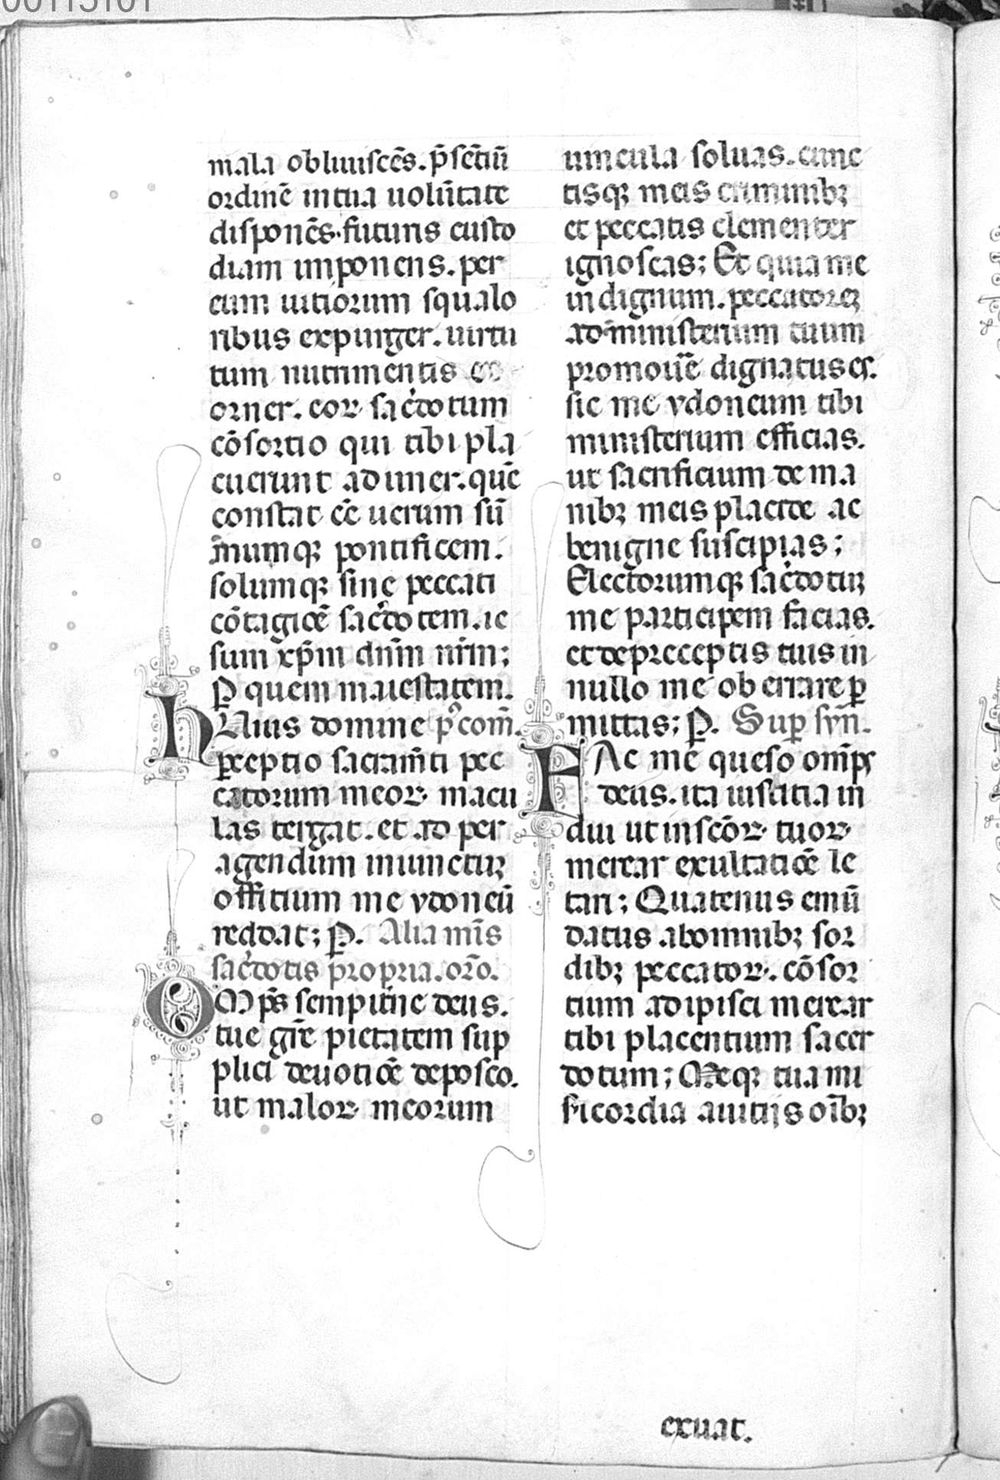 00113101
mala obliuiscēs. p̄sētiū
ordinē in tua uolūtate
disponēs. futuris custo
diam imponens. per
eum uitiorum squalo
ribus expurger. uirtu
tum nutrimentis ex
orner. eoꝝ sac̄dotum
cōsortio qui tibi pla
cuerunt aduner. quē
constat eē uerum sū
mumqꝫ pontificem.
solumqꝫ sine peccati
cōtagiōe sac̄dotem. ie
sum xp̄m dn̄m nr̄m;
P quem maiestatem.
hUius domine p̱ com̄.
ꝑceptio sacram̄ti pec
catorum meoꝝ macu
las tergat. et ad per
agendum iniunctuꝫ
offitium me ydoneū
reddat; P. Alia mīs
sac̄dotis propria. or̄o.
OMp̄s sempit̄ne deus.
tue gr̄e pietatem sup
plici deuotiōe deposco.
ut maloꝝ meorum
uincula soluas. cunc
tisqꝫ meis criminibꝫ
et peccatis clementer
ignoscas; Et quia me
indignum. peccatoreꝫ
ad ministerium tuum
promouē̄ dignatus es.
sic me ydoneum tibi
ministerium efficias.
ut sacrificium de ma
nibꝫ meis placide ac
benigne suscipias;
Electorumqꝫ sac̄dotuꝫ
me participem facias.
et de preceptis tuis in
nullo me oberrare ꝑ
mittas; P. Suꝑ syn̄.
FAc me queso om̄ps
deus. ita iustitia in
dui ut in sc̄oꝝ tuoꝝ
merear exultatiōe le
tari; Quatenus emū
datus ab omnibꝫ sor
dibꝫ peccatoꝝ. cōsor
tium adipisci merear
tibi placentium sacer
dotum; Meqꝫ tua mi
s̄icordia a uitijs oībꝫ
exuat.